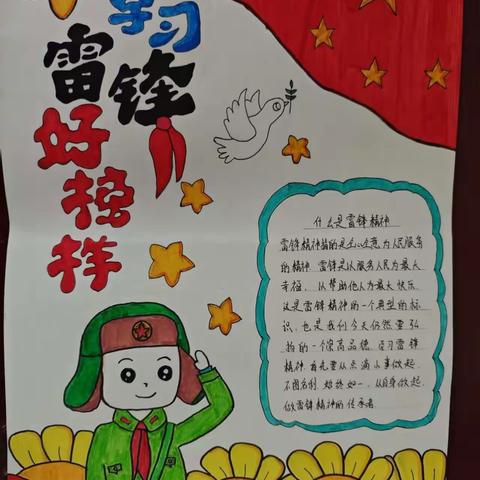 学习
雷锋
好榜样
什么是雷锋精神
雷锋精神指的是全心全意为人民服务
的精神.雷锋是以服务人民为最大
幸福，以帮助他人为最大快乐.
这是雷锋精神的一个典型的标
识，也是我们今天仍然要弘
扬的一个崇高品德.学习雷锋
精神.首先要从点滴小事做起.
不图名利 始终如一.从自身做起.
做雷锋精神的传承者.